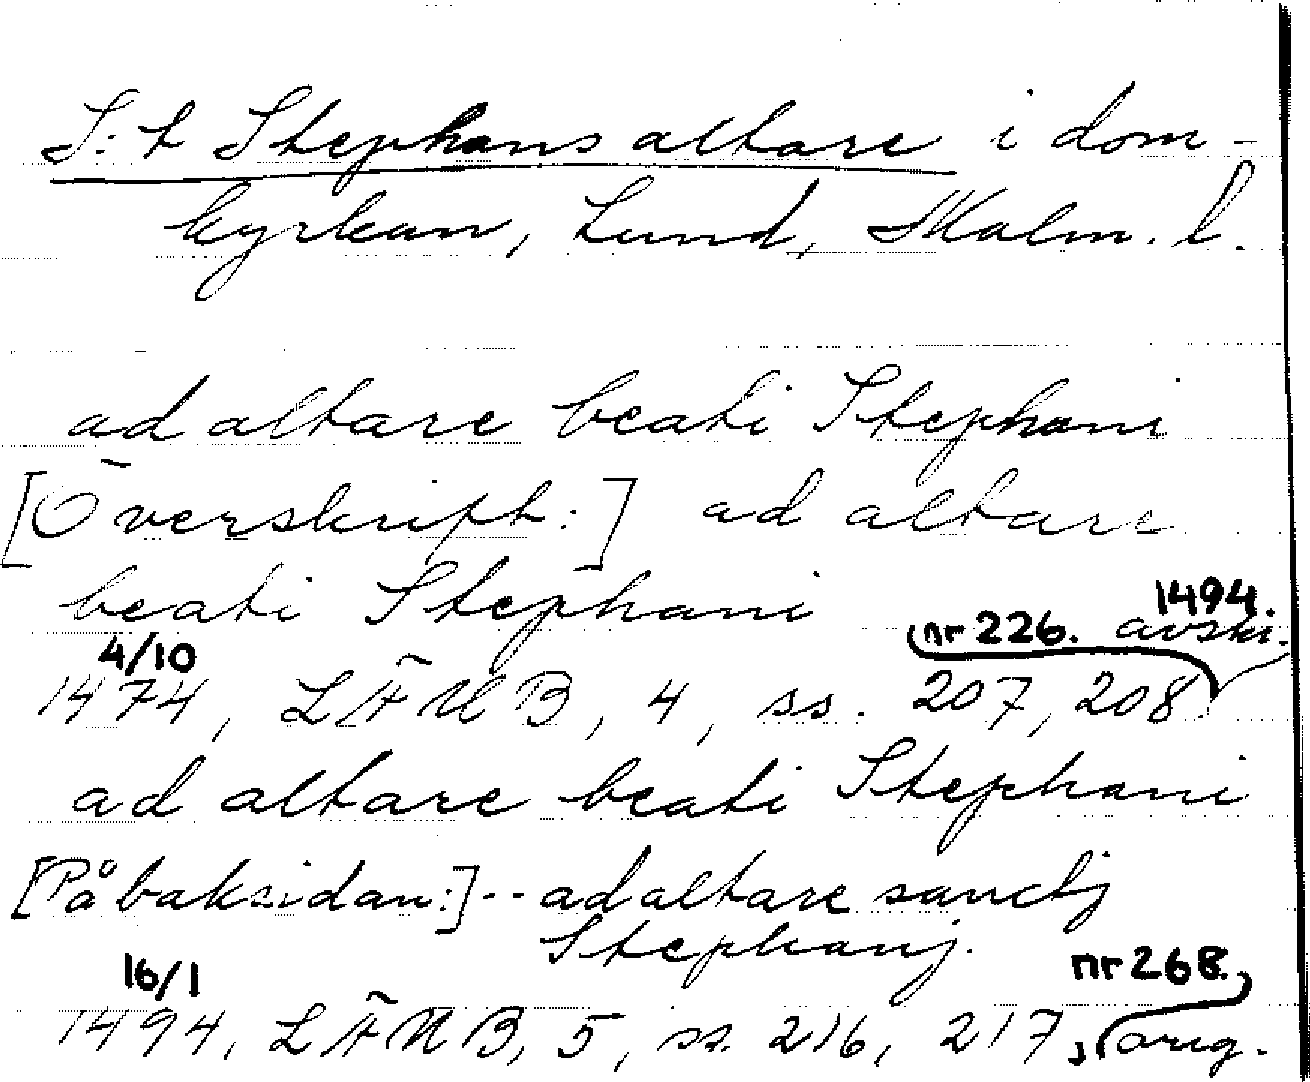 S:t Stephans altare i dom-
kyrkan, Lund, Malm. l.
ad altare beati Stephani
[Överskrift:] ad altare
beati Stephani
nr 226. 1494. avskr.
4/10
1474, LÄUB, 4, ss. 207, 208
ad altare beati Stephani
[På baksidan:] -- ad altare sanctj
Stephanj.
16/1 nr 268.
1494, LÄUB, 5, ss. 216, 217, orig.